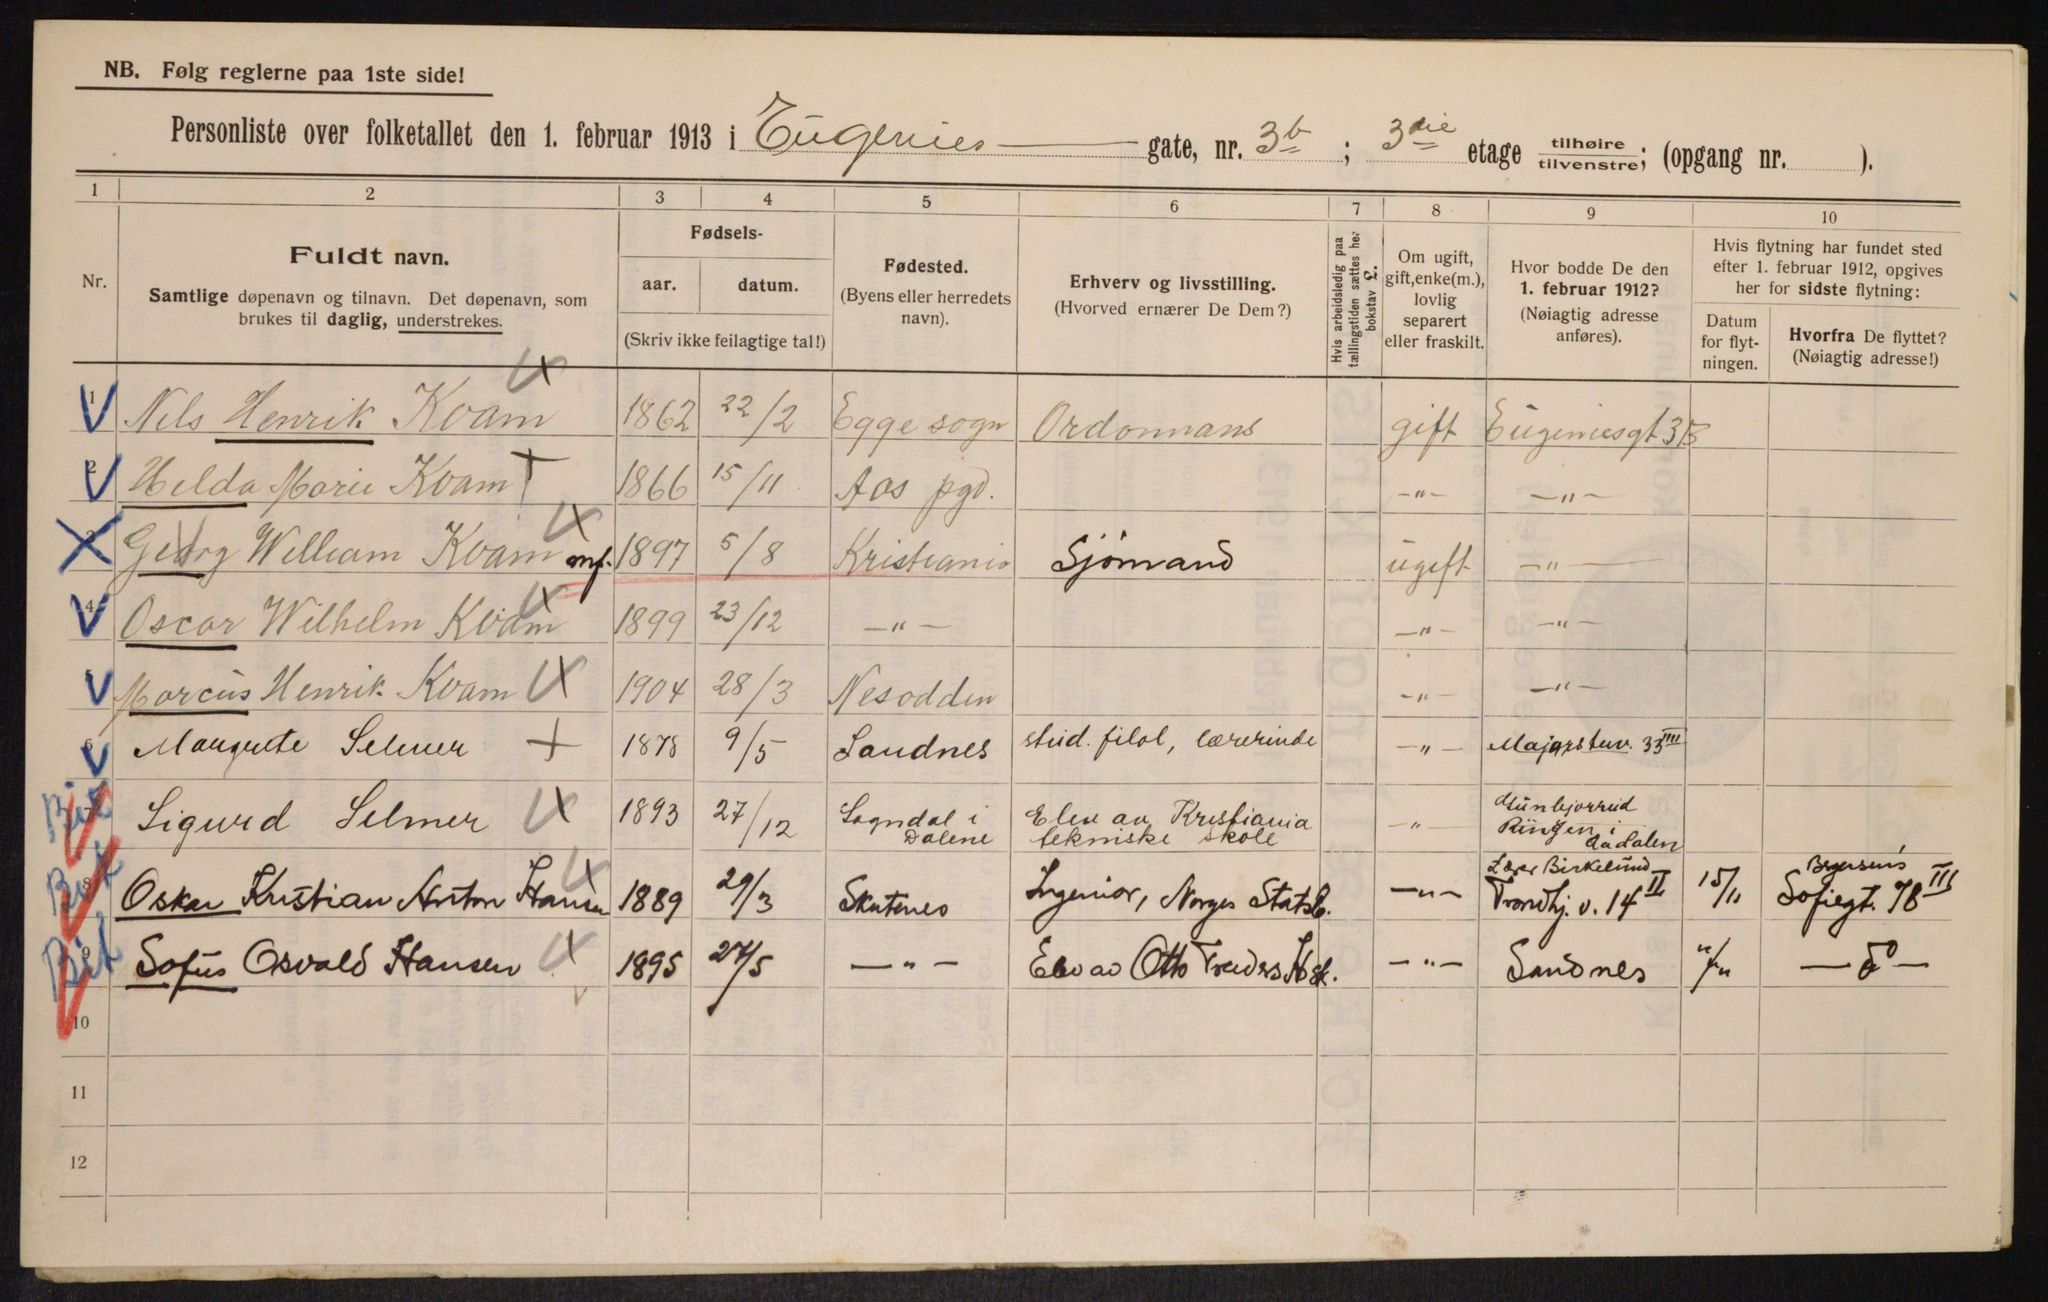 NB. Følg reglerne paa 1ste side!
Personliste over folketallet den 1. februar 1913 i Eugenies gate, nr. 3b ; 3die etage tilhøire tilvenstre; (opgang nr. ).
1 2 3 4 5 6 7 8 9 10
Nr.
Fuldt navn.
Samtlige døpenavn og tilnavn. Det døpenavn, som
brukes til daglig, understrekes.
Fødsels-
aar. datum.
(Skriv ikke feilagtige tal!)
Fødested.
(Byens eller herredets
navn).
Erhverv og livsstilling.
(Hvorved ernærer De Dem?)
Hvis arbeidsledig paa
tællingstiden sættes her
bokstav £.
Om ugift,
gift, enke(m.),
lovlig
separert
eller fraskilt.
Hvor bodde De den
1. februar 1912?
(Nøiagtig adresse
anføres).
Hvis flytning har fundet sted
efter 1. februar 1912, opgives
her for sidste flytning:
Datum
for flyt-
ningen.
Hvorfra De flyttet?
(Nøiagtig adresse!)
1 Nils Henrik Kvam 1862 22/2 Egge sogn Ordonnans gift Eugeniesgt 3B
2 Helda Marie Kvam 1866 15/11 Aas pgd. -"- -"-
3 Georg William Kvam mf. 1897 5/8 Kristiania Sjömand ugift -"-
4 Oscar Wilhelm Kvam 1899 23/12 -"- -"- -"-
Marcus Henrik Kvam 1904 28/3 Nesodden -"- -"-
6 Margrete Selmer 1878 9/5 Sandnes stud. filol, lærerinde -"- Majorstuv. 33 III
7 Sigurd Selmer 1893 27/12 Sogndal i Dalene Elev av Kristiania tekniske skole -"- Ringen i Aadalen
8 Oskar Kristian Anton Hansen 1889 29/3 Skatenes Ingeniør, Norges Statsb. -"- Lærer Birkelund Trondhj. v. 14 II 15/11 Sofiegt. 78 III
9 Sofus Osvald Hansen 1895 27/5 -"- Elev av Otto Treiders Hsk. -"- Sandnes "/" - do -
10
11
12